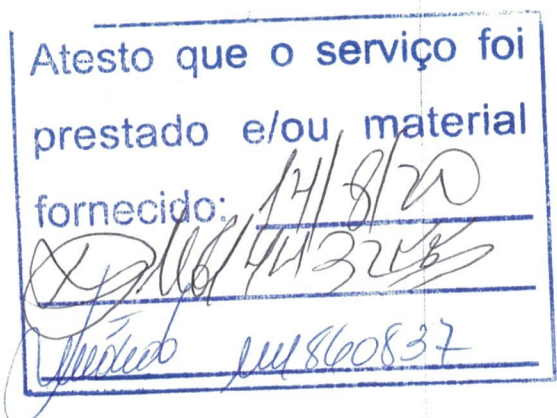 Atesto que o serviço foi
prestado e/ou material
fornecido: 14/8/20
860837